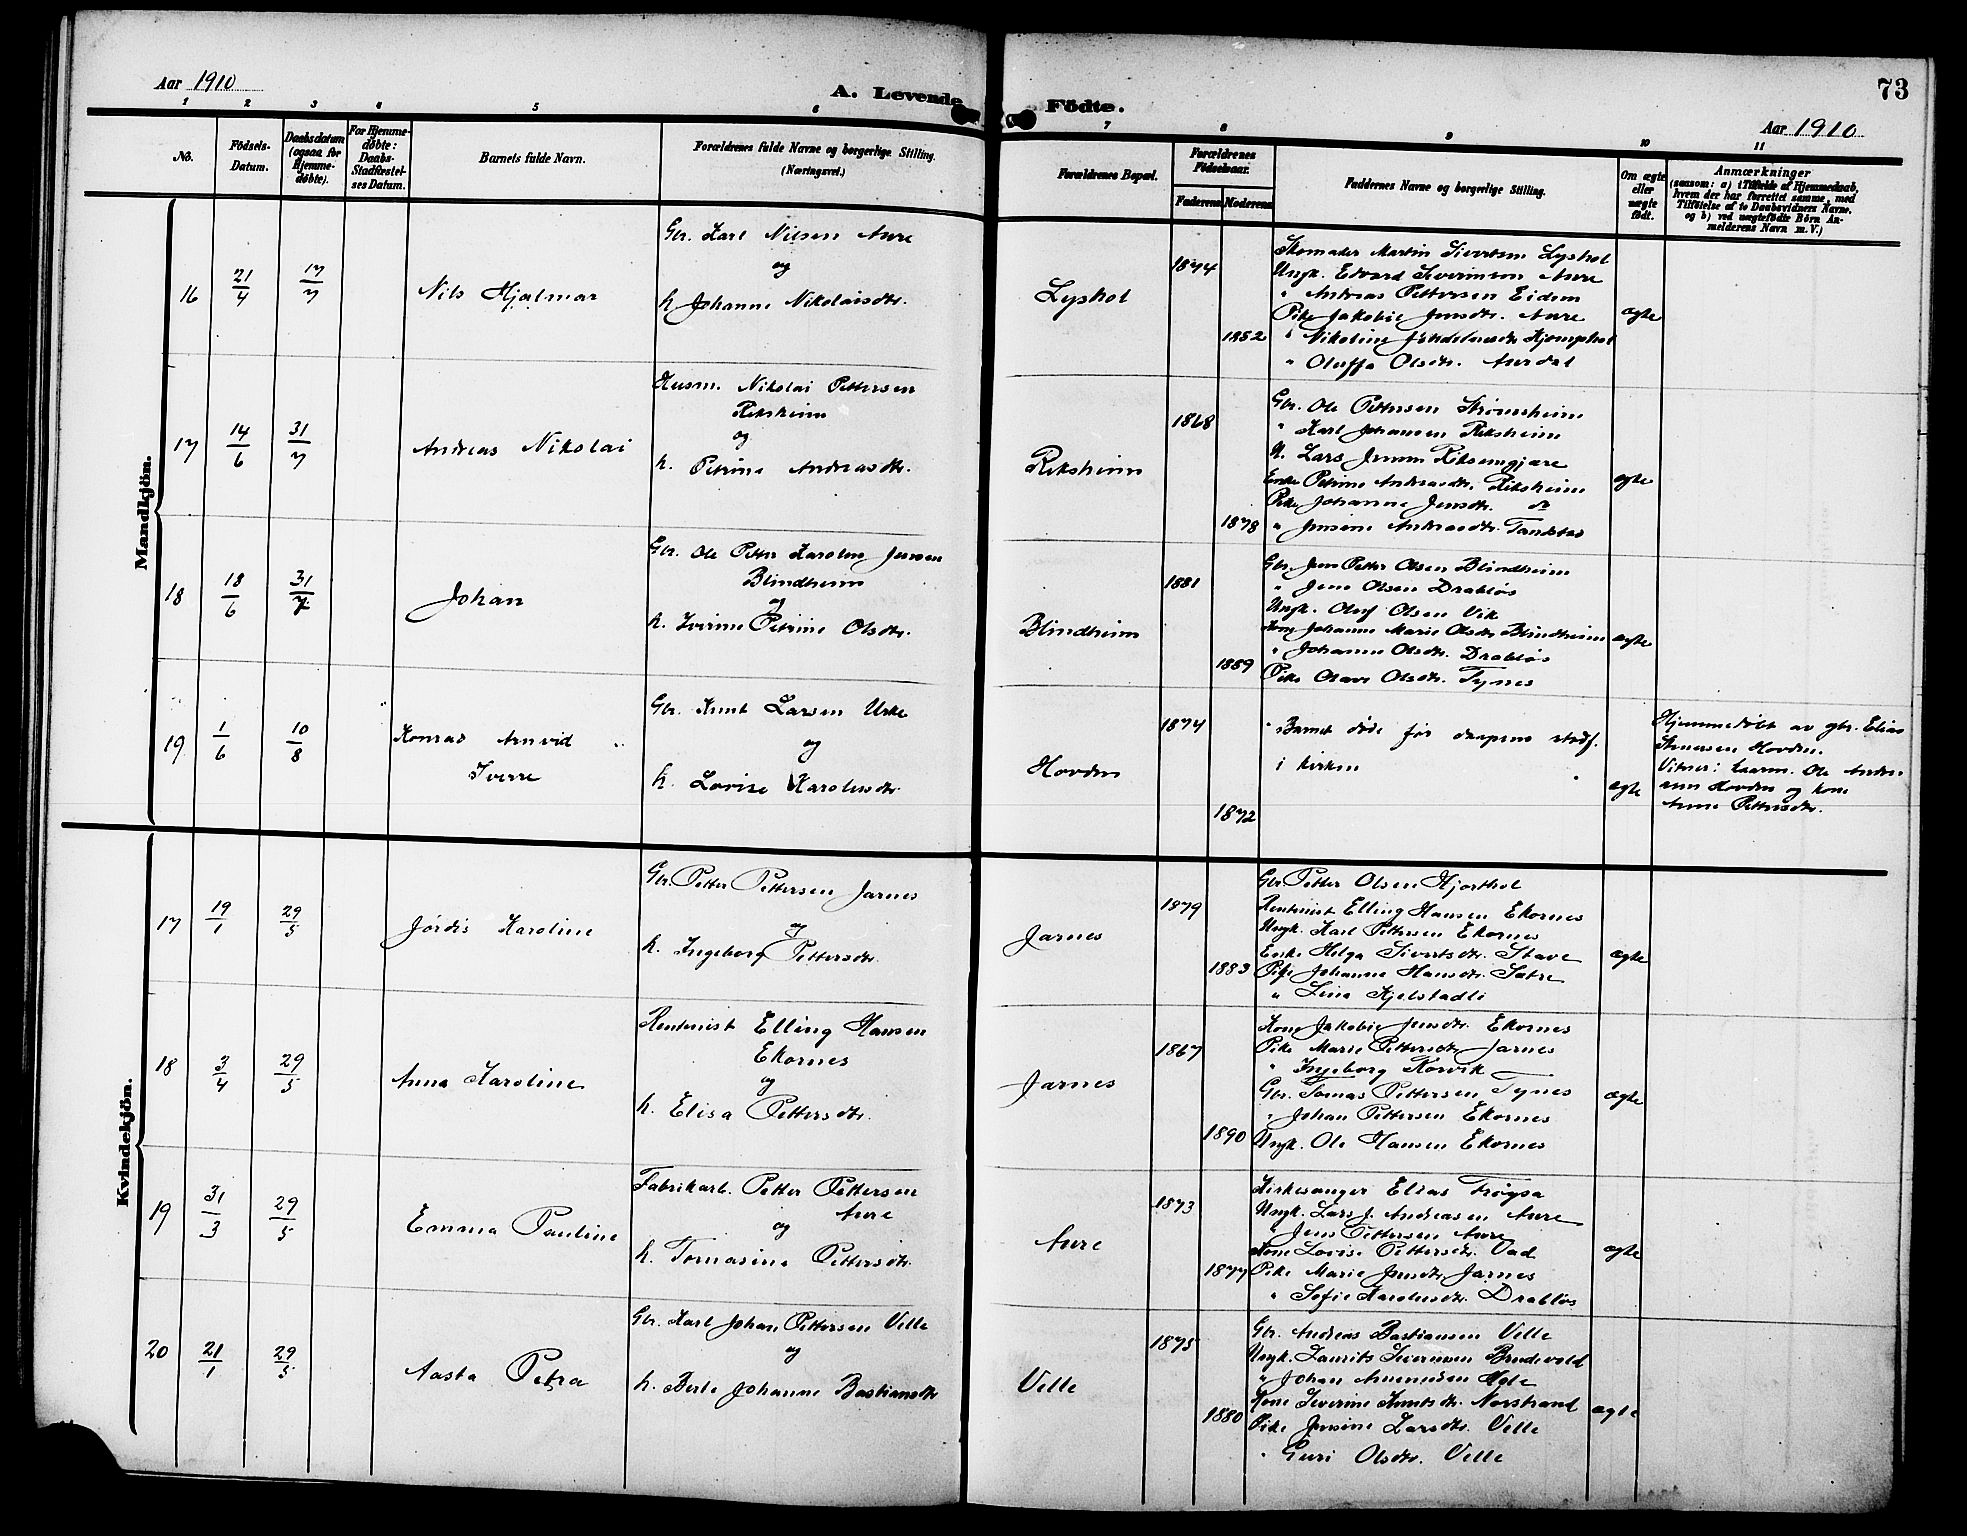 Aar 1910
A. Levende Födte.
73
Aar 1910
1 2 3 4 5 6 7 8 9 10 11
No.
Födsels-Datum.
Daabsdatum (ogsaa for Hjemme-døbte).
For Hjemme-døbte: Daabs-Stadfæstel-ses Datum.
Barnets fulde Navn.
Forældrenes fulde Navne og borgerlige Stilling. (Næringsvei.)
Forældrenes Bopæl.
Forældrenes Födselsaar.
Faderens Moderens
Faddernes Navne og borgerlige Stilling.
Om ægte eller uægte födt.
Anmærkninger
(saasom: a) i Tilfælde af Hjemmedaab,
hvem der har forrettet samme, med
Tilføielse af to Daabsvidners Navne,
og b) ved uægtefödte Börn An-
melderens Navn m. V.)
Mandkjön.
16 21/4 17/7 Nils Hjalmar
Gbr. Karl Nilsen Aure
og
h. Johanne Nikolaisdtr.
Lyshol
1874
1882
Skomaker Martin Sivertsen Lyshol
Ungk. Edvard Severinsen Aure
" Andreas Pettersen Eidem
Pike Jakobie Jensdtr. Aure
" Nikoline
" Oluffa Olsdtr. Aurdal
ægte
17 14/6 31/7 Andreas Nikolai
Husm. Nikolai Pettersen
Riksheim
og
h. Petrine Andreasdtr.
Riksheim
1868
1878
Gbr. Ole Pettersen Strømsheim
" Karl Johansen Riksheim
U. Lars Jensen Riksemgjære
Enke Petrine Andreasdtr. Riksheim
Pike Johanne Jensdtr. do
" Jensine Andreasdtr. Tandstad
ægte
18 18/6 31/7 Johan
Gbr. Ole Petter Karolus Jensen
Blindheim
og
h. Iverine Petrine Olsdtr.
Blindheim
1881
1889
Gbr. Jens Petter Olsen Blindheim
" Jens Olsen Drabløs
Ungk. Oluf Olsen Vik
Kone Johanne Marie Olsdtr. Blindheim
" Johanne Olsdtr. Drabløs
Pike Olave Olsdtr. Tynes
ægte
19 1/6 10/8 Konrad Arnvid
Sverre
Gbr. Knut Larsen Urke
og
h. Lovise Karolusdtr.
Hovden
1874
1872
Barnet døde før daapens stadf.
i kirken
ægte
Hjemmedøbt av gbr. Elias
Hovden.
Vitner: Ole Andre-
sen Hovden og kone
Anne Pettersdtr.
Kvindekjön.
17 19/1 29/5 Jørdis Karoline
Gbr. Petter Pettersen Jarnes
og
h. Ingeborg Pettersdtr.
Jarnes
1879
1883
Gbr. Petter Olsen Hjorthol
Rentenist Elling Hansen Ekornes
Ungk. Karl Pettersen Ekornes
Enke Helga Sivertsdtr. Stave
Pike Johanne Hansdtr. Sætre
" Lina Kjelstadli
ægte
18 3/4 29/5 Anna Karoline
Rentenist Elling Hansen
Ekornes
og
h. Elisa Pettersdtr.
Jarnes
1867
1890
Kone Jakobie Jensdtr. Ekornes
Pike Marie Pettersdtr. Jarnes
" Ingeborg Korvik
Gbr. Tomas Pettersen Tynes
" Johan Pettersen Ekornes
Ungk. Ole Hansen Ekornes
ægte
19 31/3 29/5 Emma Pauline
Fabrikarb. Petter Pettersen
Aure
og
h. Tomasine Pettersdtr.
Aure
1873
1877
Kirkesanger Elias Frøysa
Ungk. Lars J. Andreasen Aure
" Jens Pettersen Aure
Kone Lovise Pettersdtr. Vad
Pike Marie Jensdtr. Jarnes
" Sofie Karolusdtr. Drabløs
ægte
20 21/1 29/5 Aasta Petra
Gbr. Karl Johan Pettersen Velle
og
h. Berte Johanne Bastiansdtr.
Velle
1875
1880
Gbr. Andreas Bastiansen Velle
Ungk. Laurits Severinsen Brudevold
" Johan Hole
Kone Severine Knutsdtr. Norstrand
Pike Jensine Larsdtr. Velle
" Guri Olsdtr. Velle
ægte